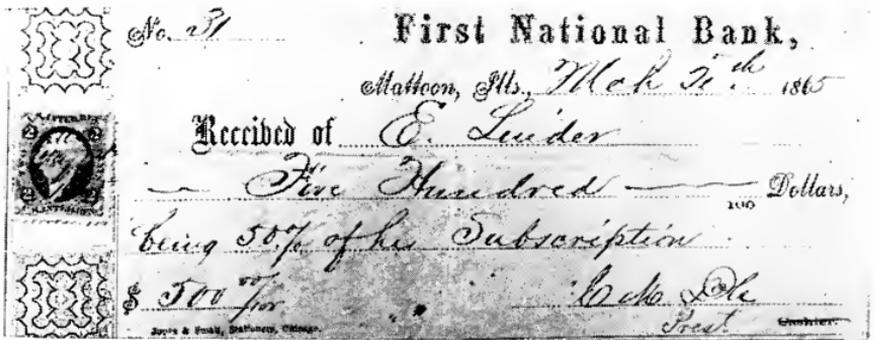 No. 31 First National Bank,
Mattoon, Ills., Mch 1865
Received of E. Linder
Five Hundred 100 Dollars,
being 50% of his Subscription
$ 500 00/100
Prest Cashier.
Joyce & Small, Stationers, Chicago.